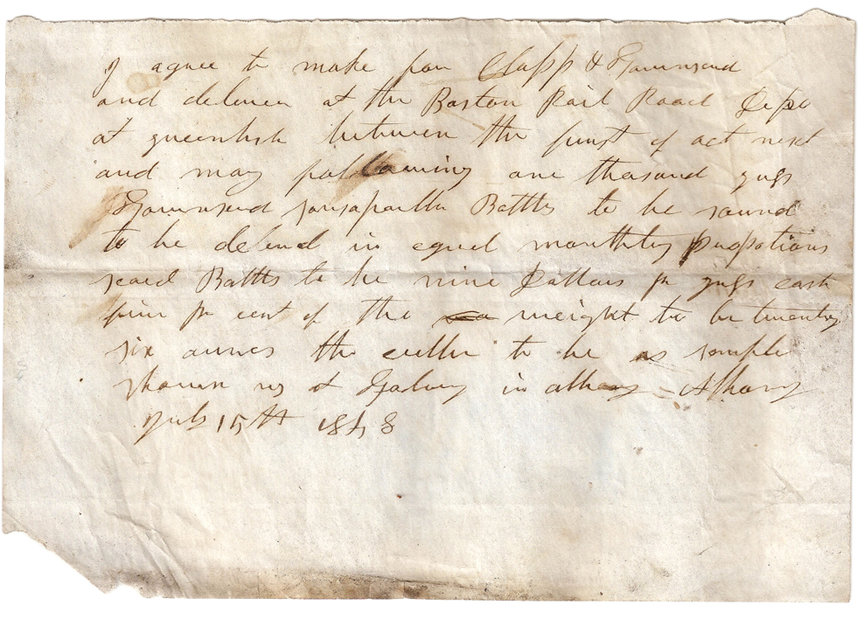 I agree to make for Clapp & Townsend
and deliver at the Boston Rail Road Depo
at greenbush between the furst of oct next
and may following one thousand grgs
Townsend sarsaparilla Battles to be sound
to be deliend in equal monthly propotions
said Battles to be nine Dollars pr grgs cash
five pr cent of the weight to be twenty
six ounces the culler to be as sample
shown us at in albany Albany
July 15th 1848